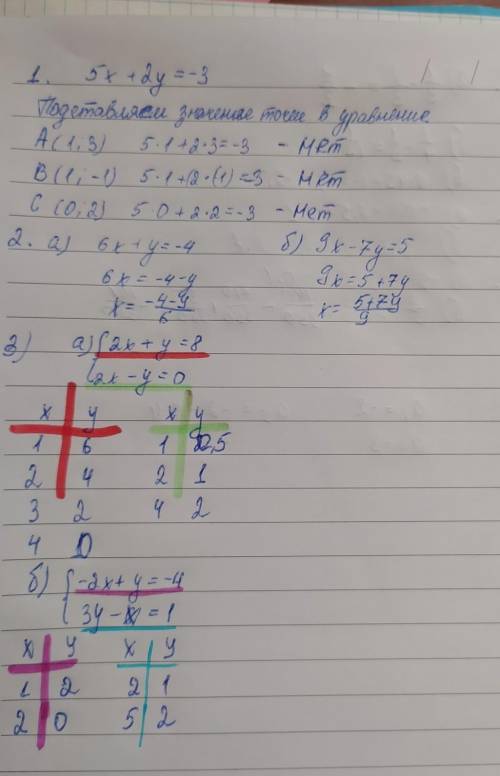 1. 5x + 2y = -3
Подставляем значение точек в уравнение
A (1,3) 5·1+2·3=-3 - Нет
B (1;-1) 5·1+(2·(1)=3 - Нет
C (0,2) 5·0+2·2=-3 - Нет
2. а) 6x+y=-4 б) 9x-7y=5
6x = -4-y 9x=5+7y
x = \frac{-4-y}{6} x = \frac{5+7y}{9}
3) а) {2x + y = 8
2x - y = 0
x y x y
1 6 1 0,5
2 4 2 1
3 2 4 2
4 0
б) {-2x+y=-4
3y-x=1
x y x y
1 2 2 1
2 0 5 2